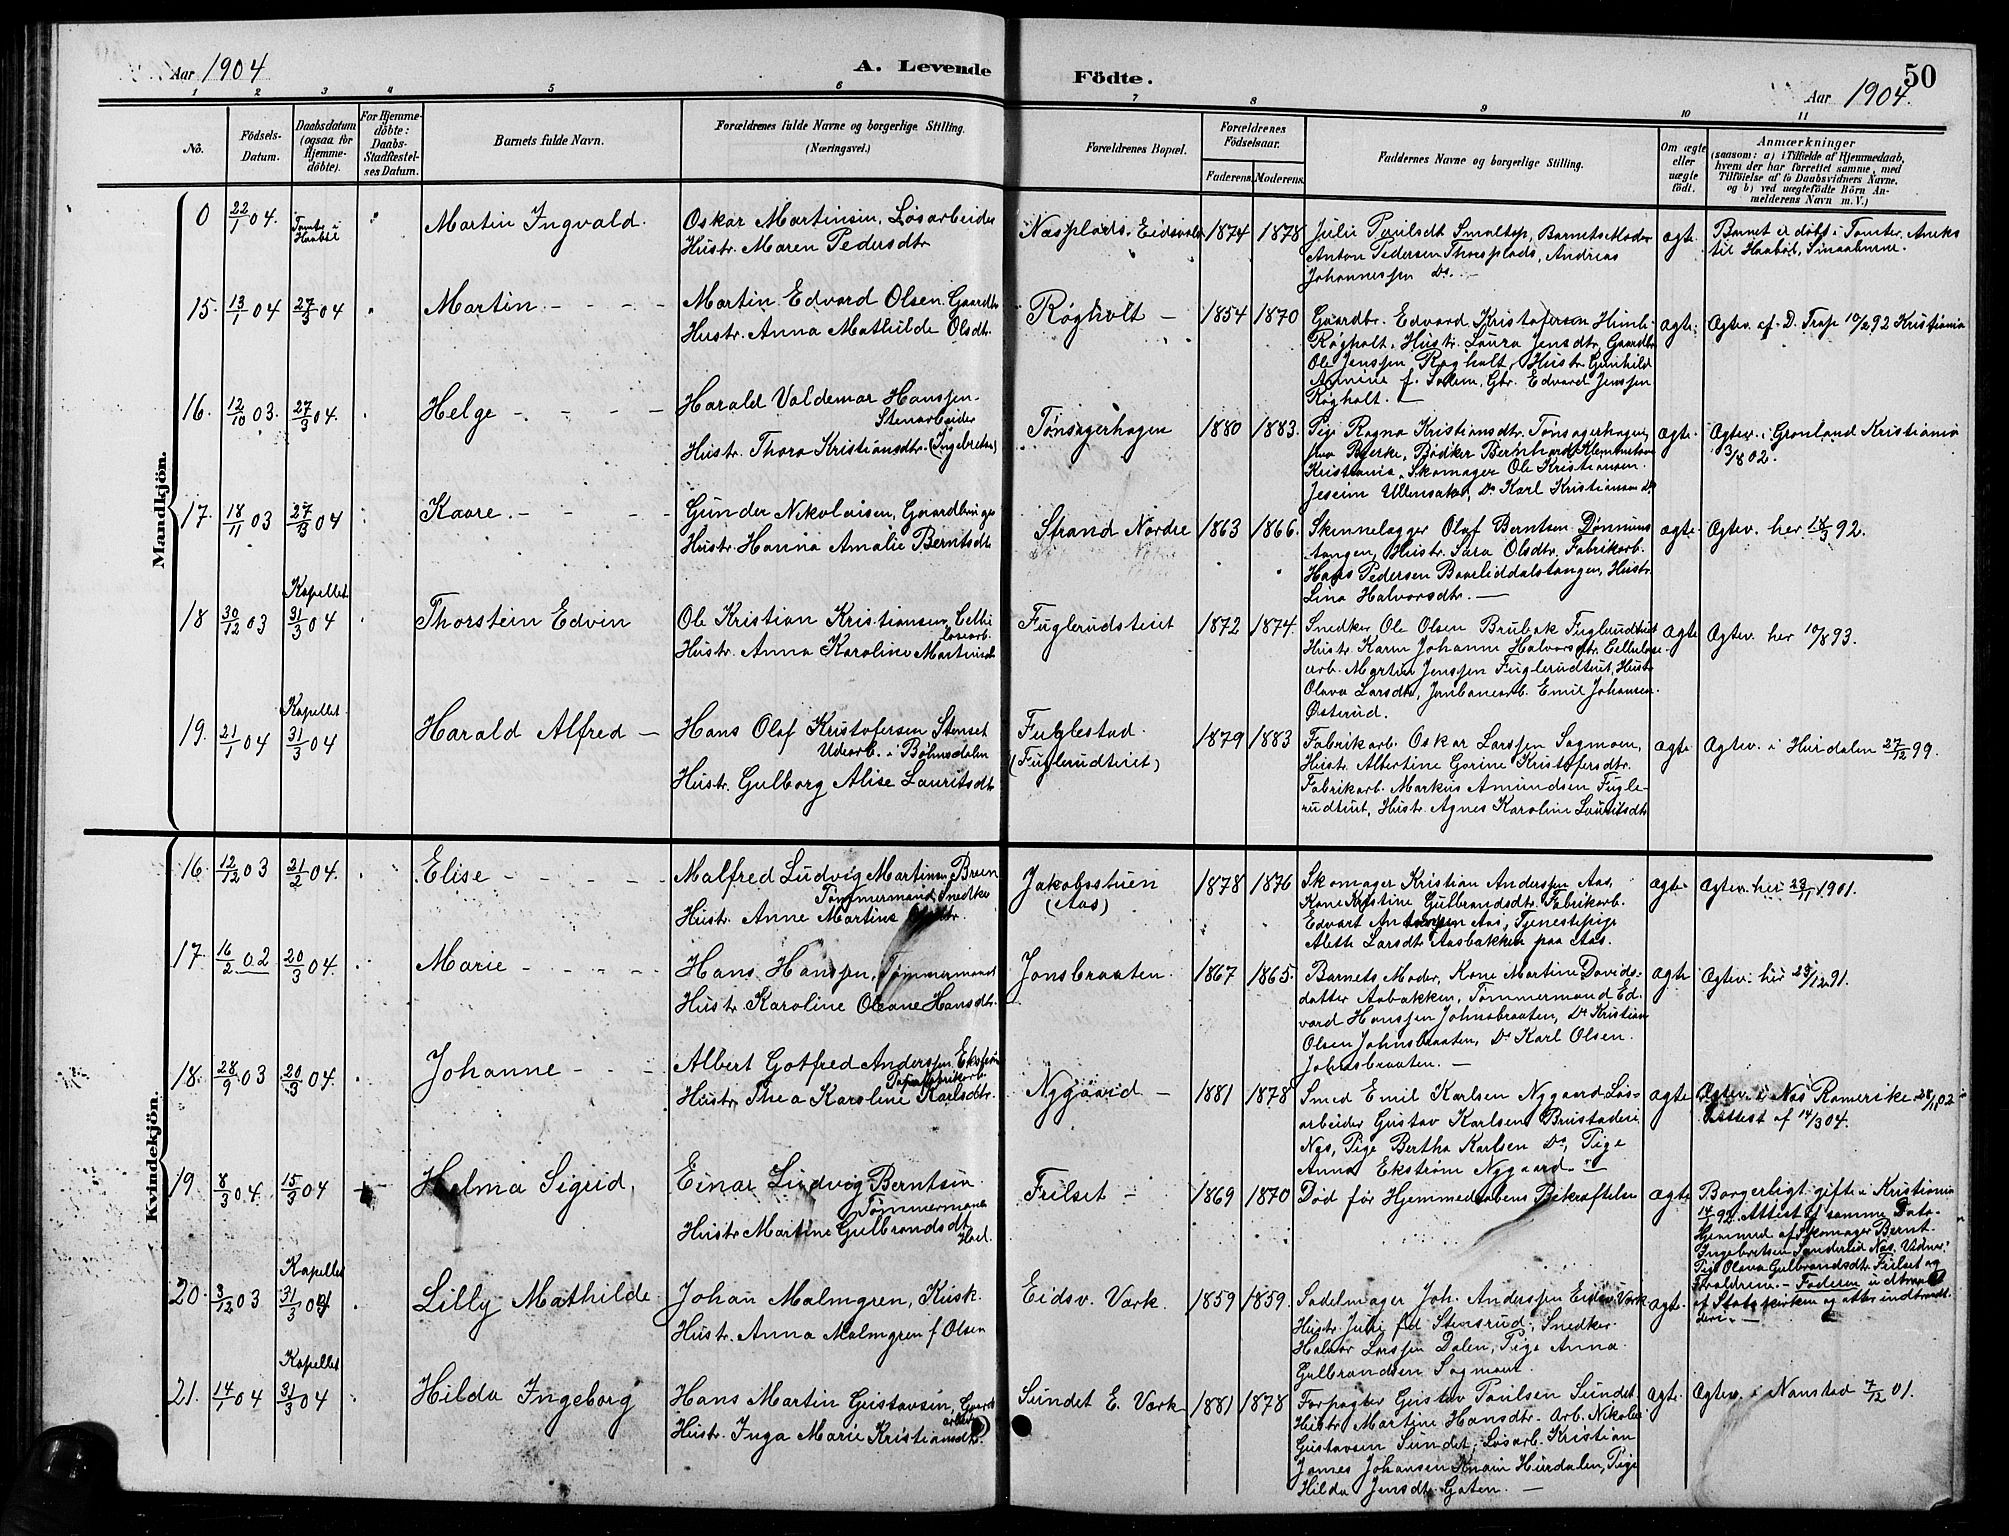 Aar 1904
A. Levende
Födte.
50
Aar 1904.
1 2 3 4 5 6 7 8 9 10 11
No.
Födsels-
Datum.
Daabsdatum
(ogsaa for
Hjemme-
döbte).
For Hjemme-
döbte:
Daabs-
Stadfæstel-
ses Datum.
Barnets fulde Navn.
Forældrenes fulde Navne og borgerlige Stilling.
(Næringsvei.)
Forældrenes Bopæl.
Forældrenes
Födselsaar.
Faderens Moderens
Faddernes Navne og borgerlige Stilling.
Om ægte
eller
uægte
født.
Anmærkninger
(saasom: a) i Tilfælde af Hjemmedaab,
hvem der har forrettet samme, med
Tilföielse af to Daabsvidners Navne,
og b) ved uægtefödte Börn An-
melderens Navn m. V.)
Mandkjön.
0 22/1 04. Tomter i
Haabøl
Martin Ingvald.
Oskar Martinsen, Løsarbeider
Hustr. Maren Pedersdtr
Næsplads. Eidsvold 1874 1878
Julie Paulsdt Smaltop, Barnets Moder
Anton Pedersen Thorsplads, Andreas
Johannessen Do. —
ægte.
Barnet er døbt i Tomter, Aneks
til Haabøl, Smaalenene.
15. 13/1 04 27/3 04
Martin - - - -
Martin Edvard Olsen. Gaardbr
Hustr. Anna Mathilde Olsdtr
Røgholt — 1854 1870
Gaardbr. Edvard Kristofersen Himli-
Røgholt, Hustr. Laura Jensdtr, Gaardbr
Ole Jenssen Røgholt, Hustr. Gunhild
Annine f. Solem, Gbr. Edvard Jenssen
Røgholt. —
ægte.
Ægtev. af D. Trap 10/2 92 Kristiania
16. 12/10 03. 27/3 04.
Helge - - - -
Harald Valdemar Hanssen.
Stenarbeider
Hustr. Thora Kristiansdtr. (Ingebretsen)
Tønsagerhagen 1880 1883.
Pige Ragna Kristiansdtr. Tønsagerhagen,
Bødker Bernhard Klemmetsen
Kristiania, Skomager Ole Kristiansen
Jesseim Ullensaker, Do Karl Kristiansen Do
ægte.
Ægtev. i Grønland Kristiania
3/8 02.
17. 18/11 03 27/3 04
Kaare. - - - -
Gunder Nikolaisen, Gaardbruger
Hustr. Hanna Amalie Berntsdtr
Strand Nordre 1863 1866.
Skinnelægger Olaf Berntsen Dønnum-
tangen, Hustr. Sara Olsdtr. Fabrikarb.
Hans Pedersen Baarliddalstangen, Hustr.
Lina Halvorsdtr. —
ægte.
Ægtev. her 18/3 92.
Kapellet
18 30/12 03 31/3 04
Thorstein Edvin
Ole Kristian Kristiansen, Cellu-
losearb.
Hustr. Anna Karoline Martinsdtr
Fuglerudsteiet 1872 1874.
Snedker Ole Olsen Brubak Fuglerudteiet
Hustr. Karen Johanne Halvorsdtr. Cellulose-
arb. Martin Jenssen Fuglerudteiet, Hustr
Olava Larsdtr, Jernbanearb. Emil Johansen
Østerud.
ægte
Ægtev. her 10/8 93.
Kapellet.
19. 21/1 04 31/3 04
Harald Alfred —
Hans Olaf Kristofersen Stenset
Udearb. i Bøhnsdalen
Hustr. Gulborg Alise Lauritsdtr
Fuglestad.
(Fuglerudteiet) 1879 1883
Fabrikarb. Oskar Larssen Sagmoen,
Hustr. Albertine Gorine Kristofersdtr.
Fabrikarb. Markus Amundsen Fugle-
rudteiet, Hustr. Agnes Karoline Lauritsdtr
ægte
Ægtev. i Hurdalen 27/12 99.
Kvindekjön.
16. 12/12 03 21/2 04.
Elise - - - -
Malfred Ludvig Martinsen Bruun
Tømmermand, Snedker
Hustr. Anne Martine
Jakobsstuen
(Aas) 1878 1876
Skomager Kristian Anderssen Aas,
Kone Kristine Gulbrandsdtr. Fabrikarb.
Edvart Aas, Tjenestepige
Alette Larsdtr Aasbakken paa Aas.
ægte.
Ægtev. her 23/11 1901.
17. 16/2 02 20/3 04.
Marie - - - -
Hans Hanssen, Tømmermand
Hustr. Karoline Oleane Hansdtr.
Jonsbraaten. 1867 1865.
Barnets Moder, Kone Martine Davids-
datter Aabakken, Tømmermand Ed-
vard Hanssen Johnsbraaten, Do Kristian
Olsen Johnsbraaten, Do Karl Olsen
Johnsbraaten. —
ægte
Ægtev. her 25/12 91.
18. 28/9 03 20/3 04.
Johanne - - -
Albert Gotfred Anderssen Ekstrøm
Papirfabrikarb.
Hustr. Thea Karoline Karlsdtr.
Nygaard — 1881 1878
Smed Emil Karlsen Nygaard Løs-
arbeider Gustav Karlsen Brustaderie
Næs, Pige Bertha Karlsen Do, Pige
Anna Ekstrøm Nygaard. —
ægte
Ægtev. i Næs Romerike 28/11 02
Attest af 14/3 04.
19 8/3 04. 15/3 04
Helma Sigrid,
Einar Ludvig Berntsen
Tømmermand
Hustr Martine Gulbrandsdtr
Hoel.
Frilset — 1869 1870
Død før Hjemmedaabens Bekræftelse
ægte
Borgerligt gifte i Kristiania
14/ 92. Attest af samme Dato.
Hjemmed. af Skomager Bernt
Ingebretsen Sanderud Næs. Vidner:
Pige Olava Gulbrandsdtr. Frilset og
Forældrene. — Faderen udtraadt
af Statskirken og atter indtraadt
deri. —
Kapellet
20. 3/12 03 31/3 04
Lilly Mathilde.
Johan Malmgren, Kusk.
Hustr. Anna Malmgren f. Olsen
Eidsv. Værk. 1859 1859.
Sadelmager Joh. Anderssen Eidsv. Værk
Hustr. Julie fød Stensrud, Snedker
Halvor Larssen Dalen, Pige Anna
Gulbrandsen Sagmoen.
ægte.
Kapellet
21. 14/1 04 31/3 04
Hilda Ingeborg
Hans Martin Gustavsen, Gaards
arbeid
Hustr. Inga Marie Kristiansdtr.
Sundet E. Værk 1881 1878
Forpagter Gustav Paulsen Sundet
Hustr Martine Hansdtr. Arb. Nikolai
Gustavsen Sundet, Løsarb. Kristian
James Johansen Knain Hurdalen, Pige
Hilda Jensdtr. Gaten. —
ægte.
Ægtev. i Nannstad 7/12 01.